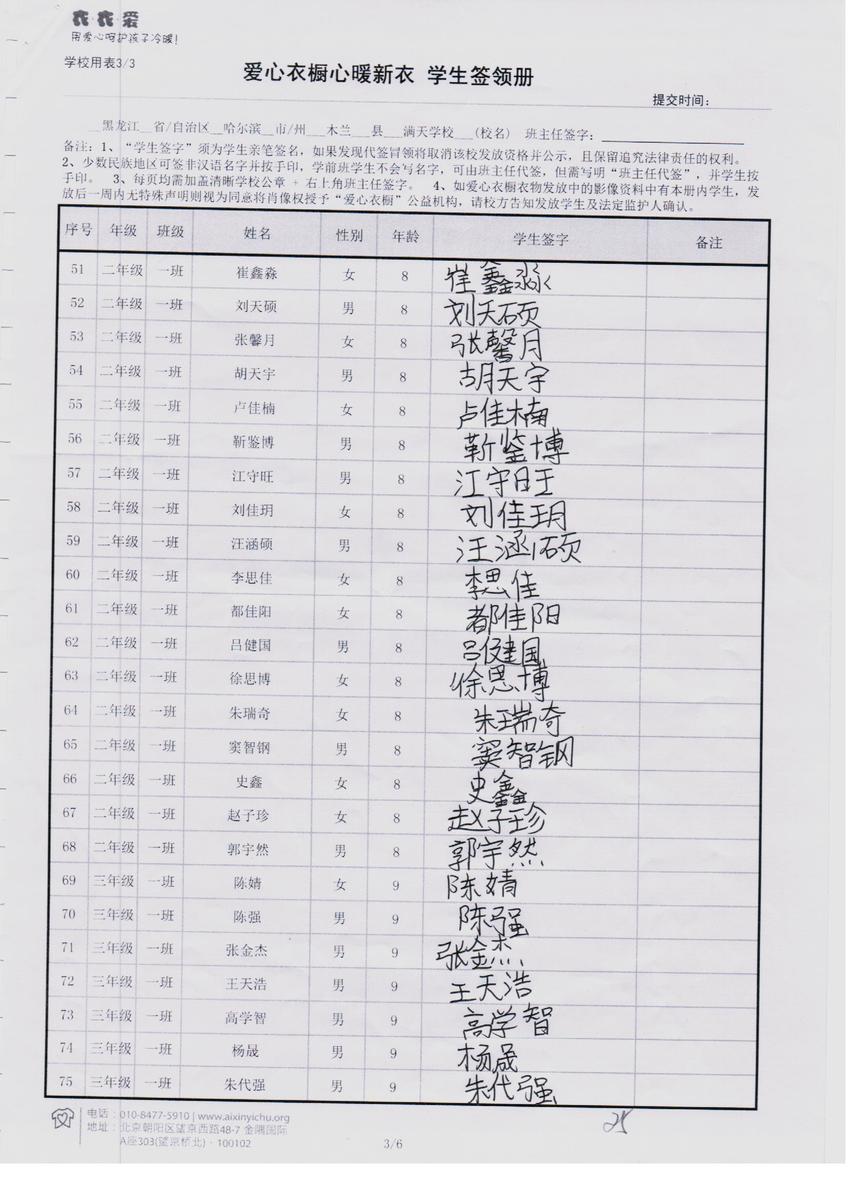 衣衣爱
用爱心呵护孩子冷暖!
学校用表3/3
爱心衣橱心暖新衣 学生签领册
提交时间:
黑龙江 省/自治区 哈尔滨 市/州 木兰 县 满天学校 (校名) 班主任签字:
备注: 1、“学生签字”须为学生亲笔签名, 如果发现代签冒领将取消该校发放资格并公示, 且保留追究法律责任的权利。
2、少数民族地区可签非汉语名字并按手印, 学前班学生不会写名字, 可由班主任代签, 但需写明“班主任代签”, 并学生按
手印。 3、每页均需加盖清晰学校公章 + 右上角班主任签字。 4、如爱心衣橱衣物发放中的影像资料中有本册内学生, 发
放后一周内无特殊声明则视为同意将肖像权授予“爱心衣橱”公益机构, 请校方告知发放学生及法定监护人确认。
序号 年级 班级 姓名 性别 年龄 学生签字 备注
51 二年级 一班 崔鑫淼 女 8 崔鑫淼
52 二年级 一班 刘天硕 男 8 刘天硕
53 二年级 一班 张馨月 女 8 张馨月
54 二年级 一班 胡天宇 男 8 胡天宇
55 二年级 一班 卢佳楠 女 8 卢佳楠
56 二年级 一班 靳鉴博 男 8 靳鉴博
57 二年级 一班 江守旺 男 8 江守旺
58 二年级 一班 刘佳玥 女 8 刘佳玥
59 二年级 一班 汪涵硕 男 8 汪涵硕
60 二年级 一班 李思佳 女 8 李思佳
61 二年级 一班 都佳阳 女 8 都佳阳
62 二年级 一班 吕健国 男 8 吕健国
63 二年级 一班 徐思博 女 8 徐思博
64 二年级 一班 朱瑞奇 女 8 朱瑞奇
65 二年级 一班 窦智钢 男 8 窦智钢
66 二年级 一班 史鑫 女 8 史鑫
67 二年级 一班 赵子珍 女 8 赵子珍
68 二年级 一班 郭宇然 男 8 郭宇然
69 三年级 一班 陈婧 女 9 陈婧
70 三年级 一班 陈强 男 9 陈强
71 三年级 一班 张金杰 男 9 张金杰
72 三年级 一班 王天浩 男 9 王天浩
73 三年级 一班 高学智 男 9 高学智
74 三年级 一班 杨晟 男 9 杨晟
75 三年级 一班 朱代强 男 9 朱代强
电话: 010-8477-5910 | www.aixinyichu.org
地址: 北京朝阳区望京西路48-7 金隅国际
A座303(望京桥北) · 100102
3/6
25